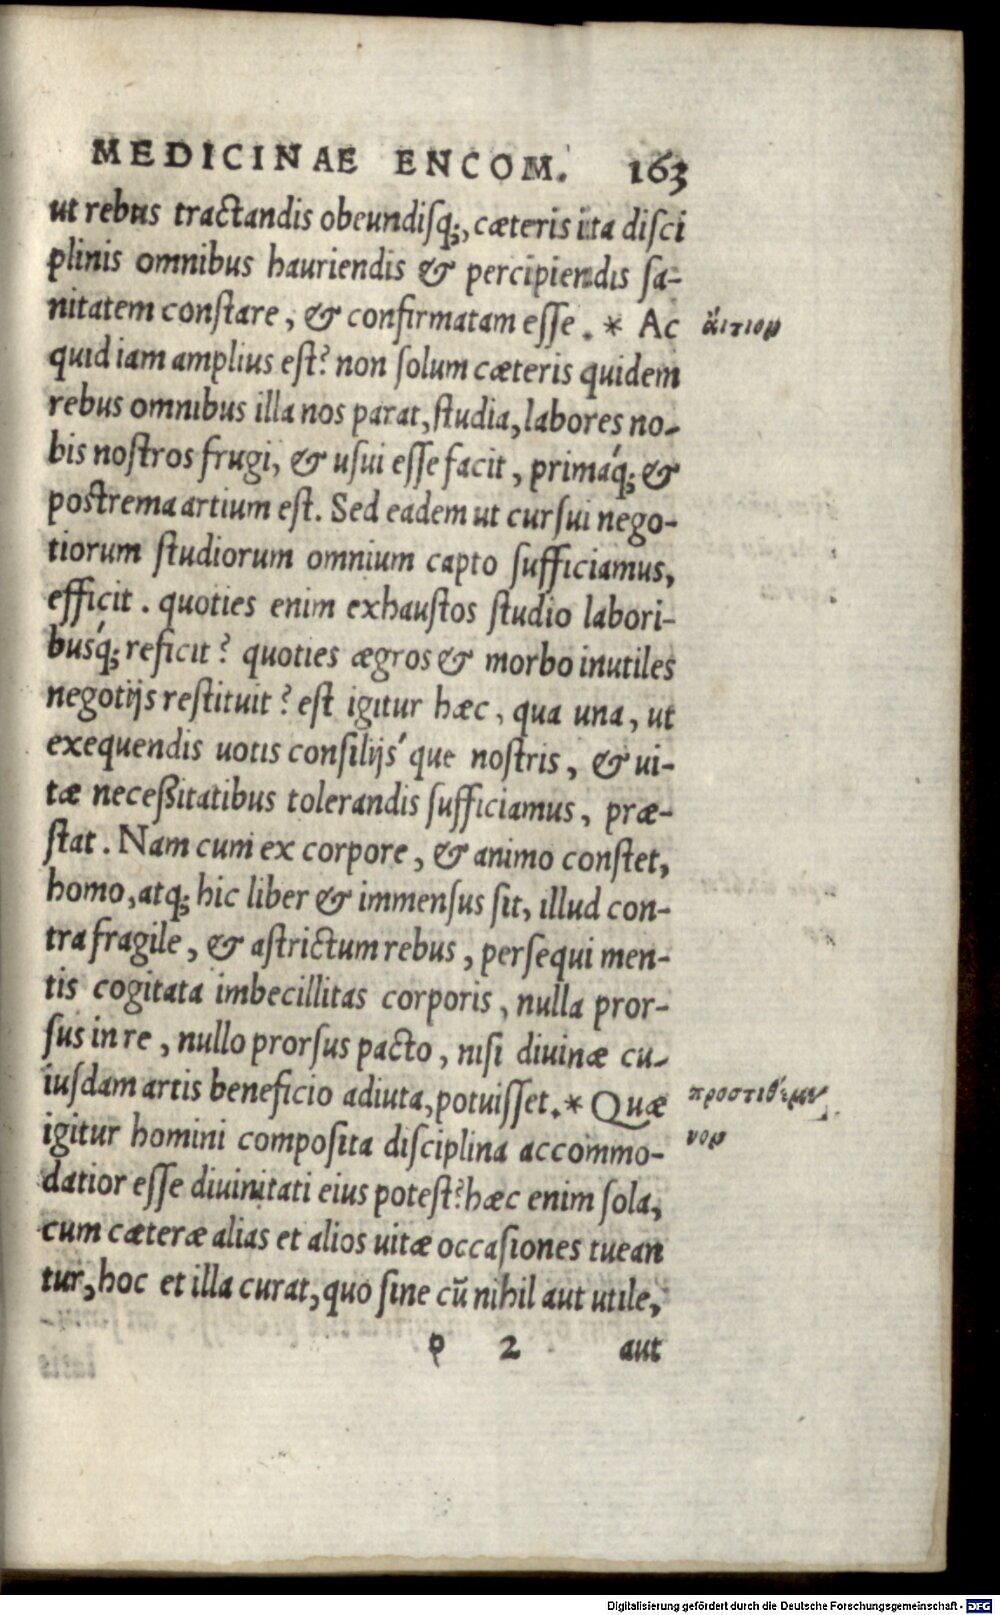 MEDICINAE ENCOM. 163
ut rebus tractandis obeundisq́;, cæteris ita disci
plinis omnibus hauriendis & percipiendis sa-
nitatem constare, & confirmatam esse. * Ac
ἄιτιον
quid iam amplius est? non solum cæteris quidem
rebus omnibus illa nos parat, studia, labores no-
bis nostros frugi, & usui esse facit, primáq; &
postrema artium est. Sed eadem ut cursui nego-
tiorum studiorum omnium capto sufficiamus,
efficit. quoties enim exhaustos studio labori-
busq́; reficit? quoties ægros & morbo inutiles
negotijs restituit? est igitur hæc, qua una, ut
exequendis uotis consilijs´que nostris, & ui-
tæ neceßitatibus tolerandis sufficiamus, præ-
stat. Nam cum ex corpore, & animo constet,
homo, atq; hic liber & immensus sit, illud con-
tra fragile, & astrictum rebus, persequi men-
tis cogitata imbecillitas corporis, nulla pror-
sus in re, nullo prorsus pacto, nisi diuinæ cu-
iusdam artis beneficio adiuta, potuisset. * Quæ
προστιθέμε
νον
igitur homini composita disciplina accommo-
datior esse diuinitati eius potest? hæc enim sola,
cum cæteræ alias et alios uitæ occasiones tuean
tur, hoc et illa curat, quo sine cū nihil aut utile,
2 aut
Digitalisierung gefördert durch die Deutsche Forschungsgemeinschaft - DFG